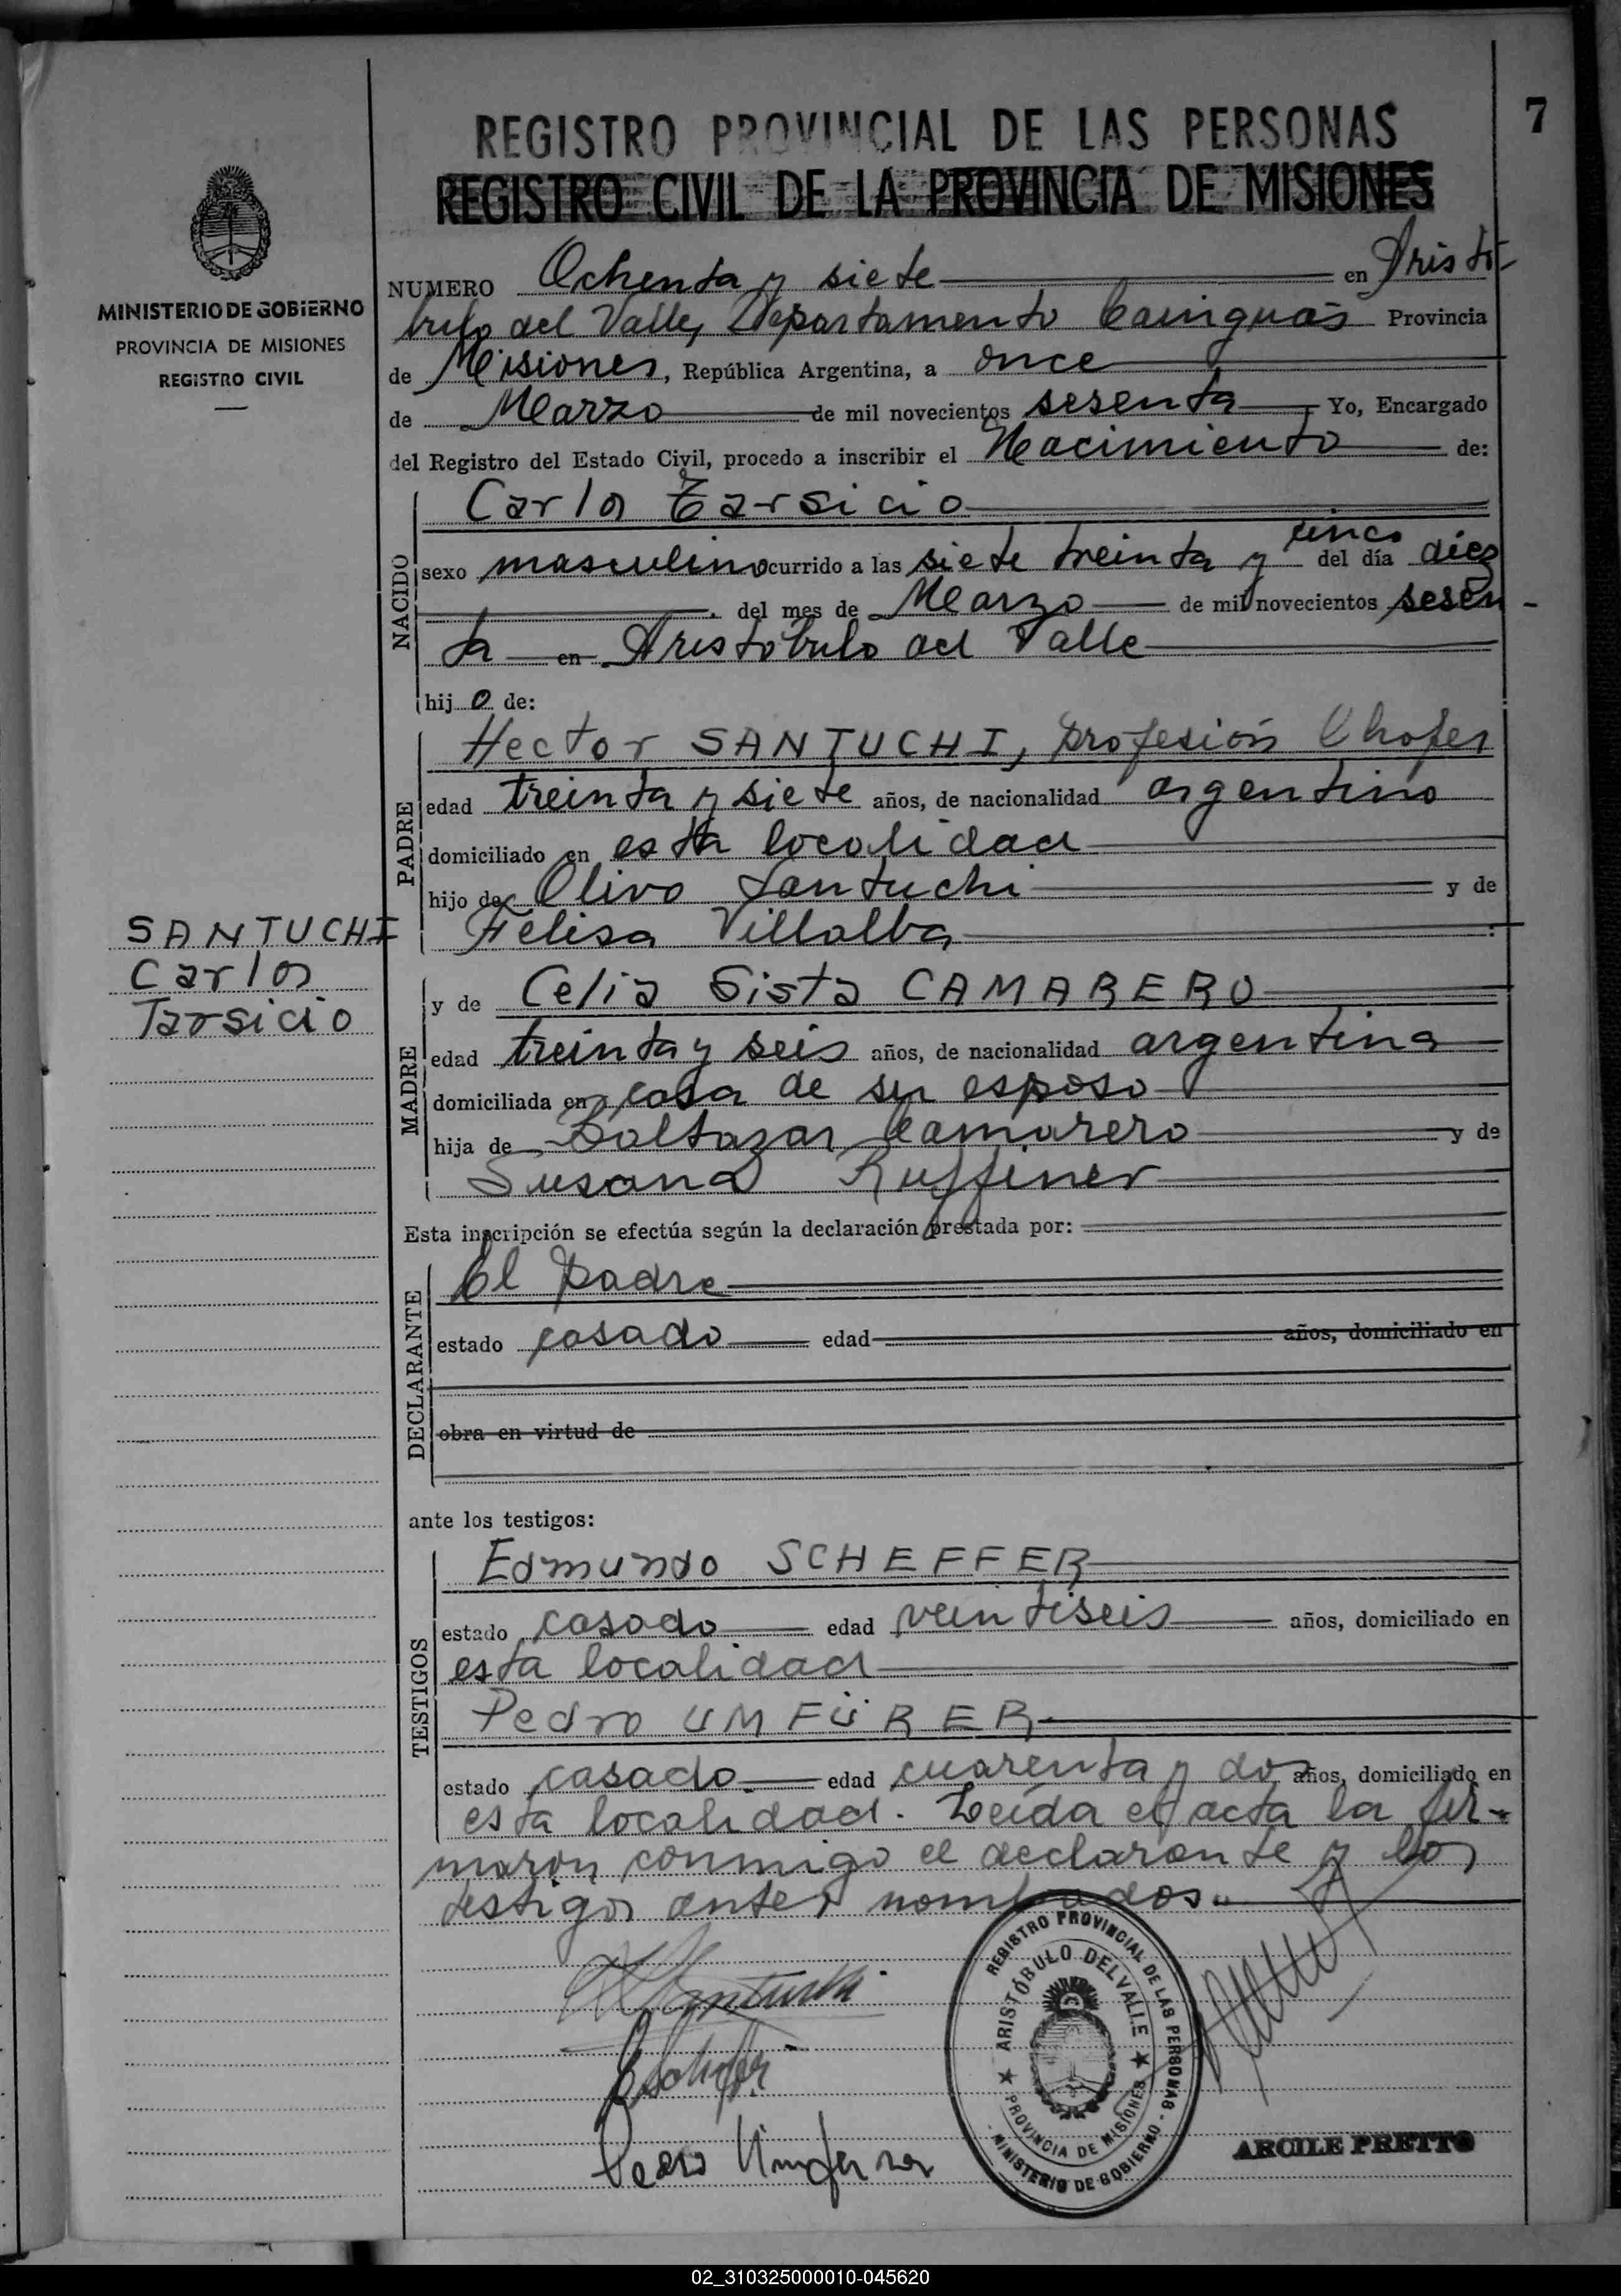 7
REGISTRO PROVINCIAL DE LAS PERSONAS
REGISTRO CIVIL DE LA PROVINCIA DE MISIONES
MINISTERIO DE GOBIERNO
PROVINCIA DE MISIONES
REGISTRO CIVIL
NUMERO Ochenta y siete en Aristó-
bulo del Valle, Departamento Cainguás Provincia
de Misiones, República Argentina, a once
de Marzo de mil novecientos sesenta Yo, Encargado
del Registro del Estado Civil, procedo a inscribir el Nacimiento de:
NACIDO
Carlos Tarsicio
sexo masculino ocurrido a las siete treinta y cinco del día diez
del mes de Marzo de mil novecientos sesen-
ta en Aristóbulo del Valle
hijo de:
PADRE
Hector SANTUCHI, profesión Chofer
edad treinta y siete años, de nacionalidad argentino
domiciliado en esta localidad
hijo de Olivo Santuchi y de
Felisa Villalba
SANTUCHI
Carlos
Tarsicio
MADRE
y de Celia Sista CAMARERO
edad treinta y seis años, de nacionalidad argentina
domiciliada en casa de su esposo
hija de Baltazar Camarero y de
Susana Ruffiner
Esta inscripción se efectúa según la declaración prestada por:
DECLARANTE
El padre
estado casado edad años, domiciliado en
obra en virtud de
ante los testigos:
TESTIGOS
Edmundo SCHEFFER
estado casado edad veintiseis años, domiciliado en
esta localidad
Pedro UMFÜRER
estado casado edad cuarenta y dos años, domiciliado en
esta localidad. Leída el acta la fir-
maron conmigo el declarante y los
testigos antes nombrados.
REGISTRO PROVINCIAL DE LAS PERSONAS - MINISTERIO DE GOBIERNO
ARISTÓBULO DEL VALLE
PROVINCIA DE MISIONES
Pedro
ARCILE PRETTO
02_310325000010-045620